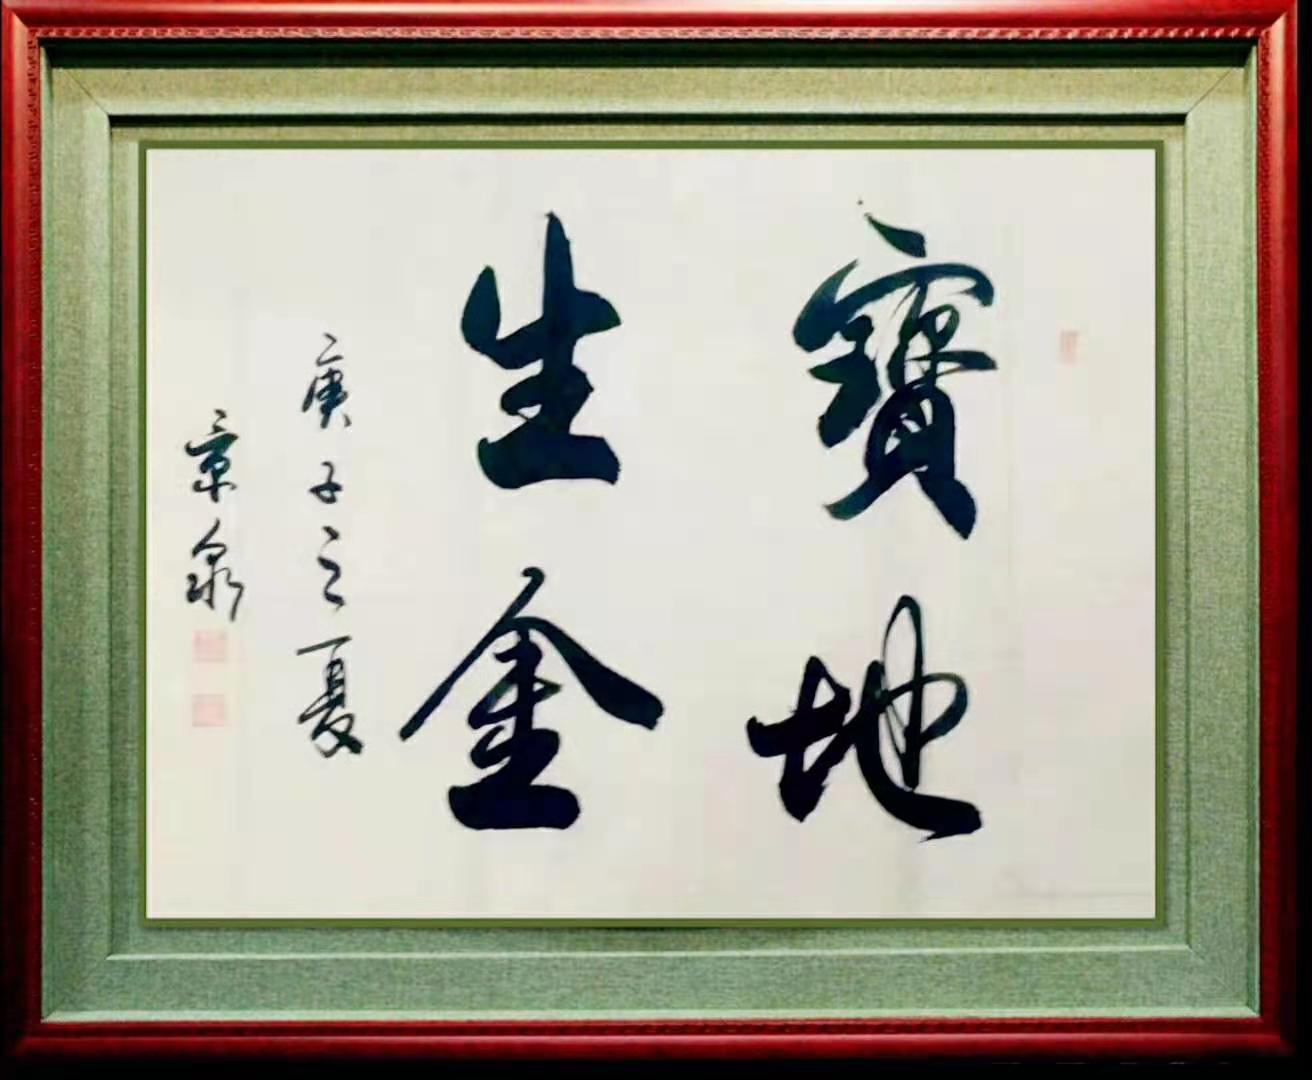 寶地
生金
庚子之夏
景泉